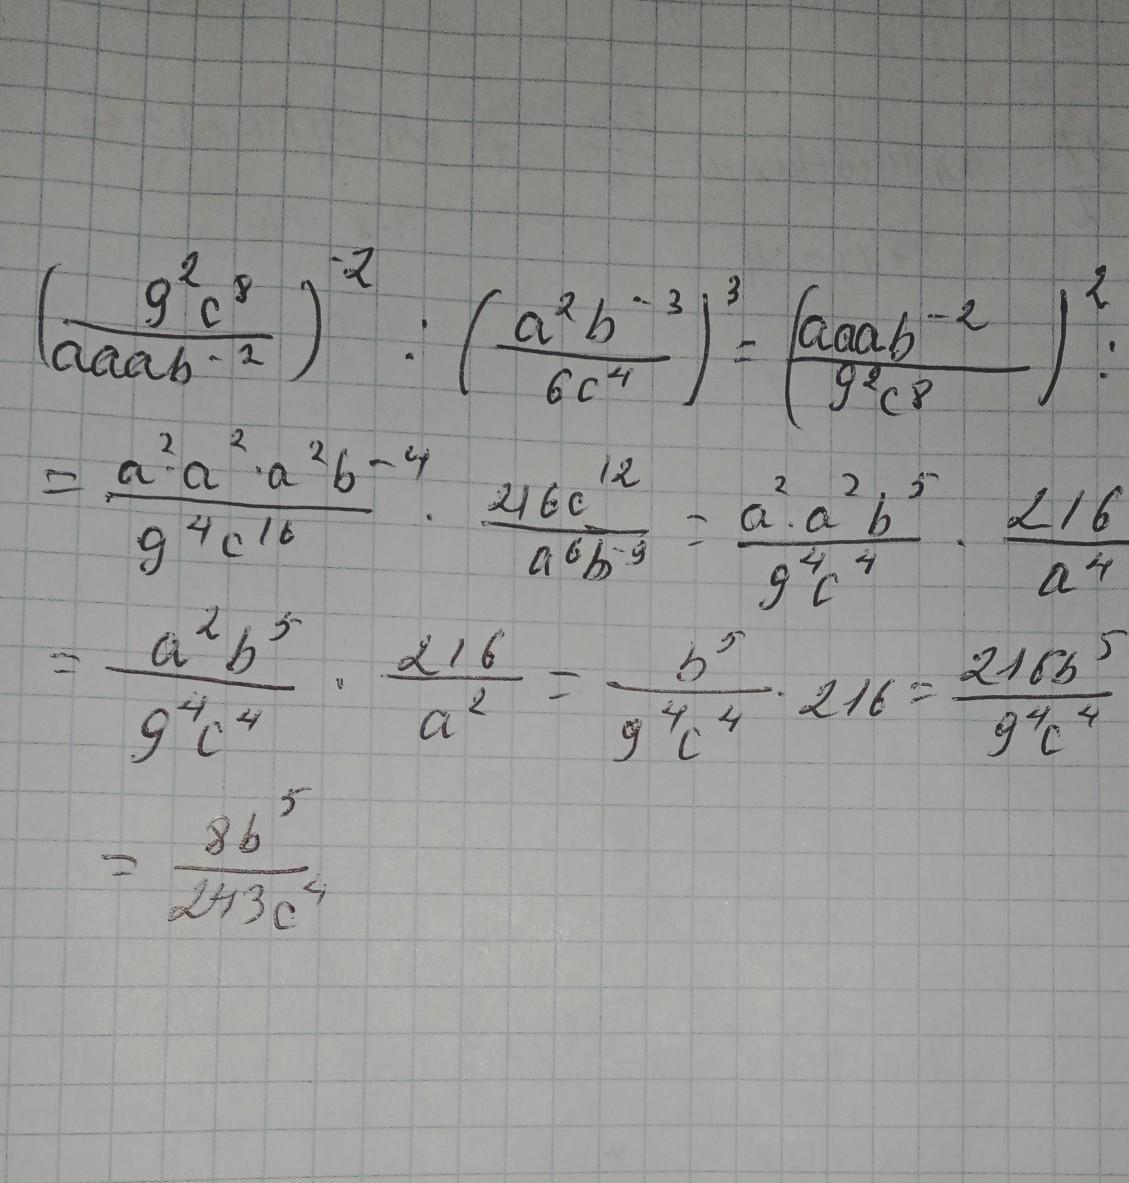 (9²c⁸/aaab⁻²)⁻² : (a²b⁻³/6c⁴)³ = (aaab⁻²/9²c⁸)² :
= a²·a²·a²b⁻⁴/9⁴c¹⁶ · 216c¹²/a⁶b⁻⁹ = a²·a²b⁵/9⁴c⁴ · 216/a⁴
= a²b⁵/9⁴c⁴ · 216/a² = b⁵/9⁴c⁴ · 216 = 216b⁵/9⁴c⁴
= 8b⁵/243c⁴